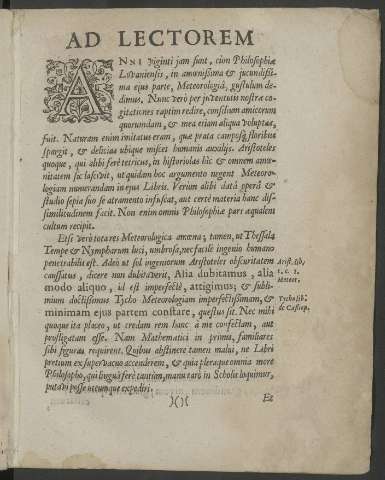 AD LECTOREM
ANNI viginti jam sunt, cùm Philosophiæ
Lovaniensis, in amœnissima & jucundissi-
ma ejus parte, Meteorologiâ, gustulum de-
dimus. Nunc verò per juventutis nostræ co-
gitationes raptim redire, consilium amicorum
quorumdam, & mea etiam aliqua voluptas,
fuit. Naturam enim imitatus eram, quæ prata camposq; floribus
spargit, & delicias ubique miscet humanis auxilijs. Aristoteles
quoque, qui alibi ferè tetricus, in historiolas hîc & omnem amœ-
nitatem sic lascivit, ut quidam hoc argumento negent Meteoro-
logiam numerandam in ejus Libris. Verùm alibi datâ operâ &
studio sepia suo se atramento infuscat, aut certè materia hanc dis-
similitudinem facit. Non enim omnis Philosophiæ pars æqualem
cultum recipit.
Etsi verò totares Meteorologica amœna; tamen, ut Thessala
Tempe & Nympharum luci, umbrosa, nec facilè ingenio humano
penetrabilis est. Adeò ut sol ingeniorum Aristoteles obscuritatem
caussatus, dicere non dubitaverit, Alia dubitamus, alia
modo aliquo, id est imperfectè, attigimus; & subli-
mium doctissimus Tycho Meteorologiam imperfectissimam, &
minimam ejus partem constare, questus sit. Nec mihi
quoque ita placeo, ut credam rem hanc à me confectam, aut
profligatam esse. Nam Mathematici in primis, familiares
sibi figuras requirent. Quibus abstinere tamen malui, ne Libri
pretium ex supervacuo accenderem, & quia pleraque omnia more
Philosopho, qui linguâ ferè tantùm, manu rarò in Scholis loquimur,
putavi posse utcunque expediri.
Arist. lib.
1. c. 1.
Meteor.
Tycho lib.
de Comet.
)()(
Et